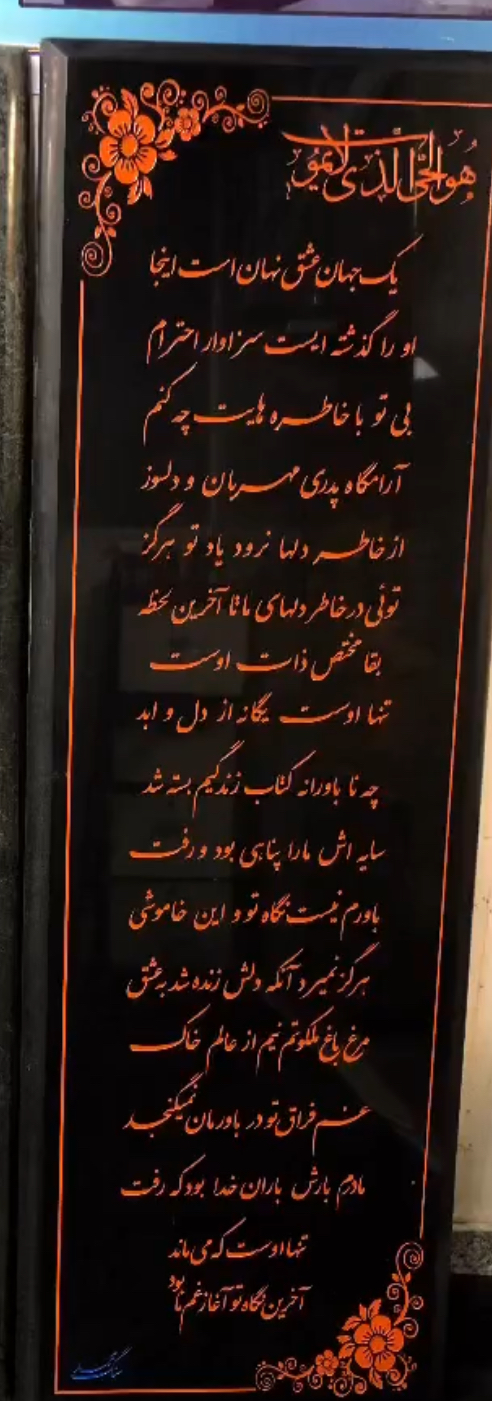 هو الحی الذی لایموت
یک جهان عشق نهان است اینجا
او را گذشته ایست سزاوار احترام
بی تو با خاطره هایت چه کنم
آرامگاه پدری مهربان و دلسوز
از خاطر دلها نرود یاد تو هرگز
توئی در خاطر دلهای ما تا آخرین لحظه
بقا مختص ذات اوست
تنها اوست یگانه از دل و ابد
چه نا باورانه کتاب زندگیم بسته شد
سایه اش مارا پناهی بود و رفت
باورم نیست نگاه تو و این خاموشی
هرگز نمیرد آنکه دلش زنده شد به عشق
مرغ باغ ملکوتم نیم از عالم خاک
غم فراق تو در باورمان نمیگنجد
مادرم بارش باران خدا بود که رفت
تنها اوست که می ماند
آخرین نگاه تو آغاز غم ما بود